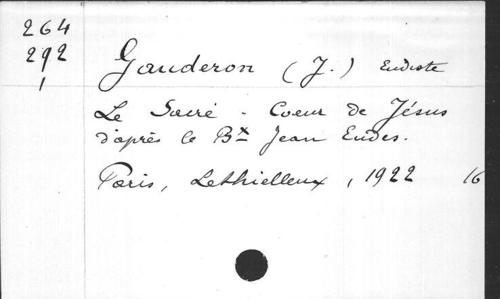 264
292
1
Gauderon (J.) Eudiste
Le Sacré-Coeur de Jésus
d'après le Bx Jean Eudes.
Paris, Lethielleux, 1922 16